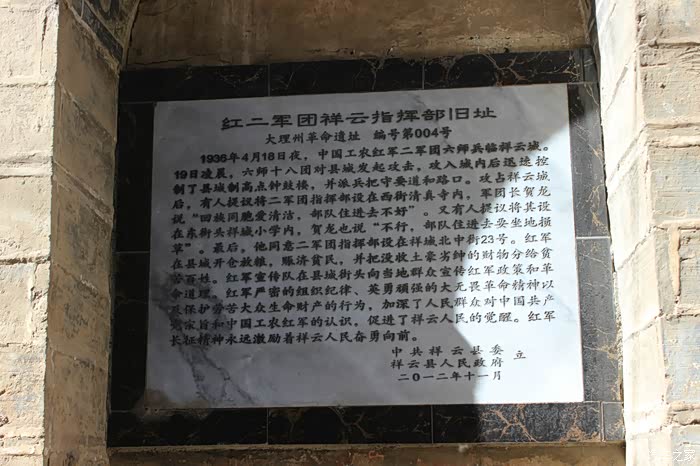 红二军团祥云指挥部旧址
大理州革命遗址 编号第004号
1936年4月18日夜，中国工农红军二军团六师兵临祥云城。
19日凌晨，六师十八团对县城发起攻击，攻入城内后迅速控
制了县城制高点钟鼓楼，并派兵把守要道和路口。攻占祥云城
后，有人提议将二军团指挥部设在西街清真寺内，军团长贺龙
说“回族同胞爱清洁，部队住进去不好”。又有人提议将其设
在东街头祥城小学内，贺龙也说“不行，部队住进去要坐地损
草”。最后，他同意二军团指挥部设在祥城北中街23号。红军
在县城开仓放粮，赈济贫民，并把没收土豪劣绅的财物分给贫
苦百姓。红军宣传队在县城街头向当地群众宣传红军政策和革
命道理。红军严密的组织纪律、英勇顽强的大无畏革命精神以
及保护劳苦大众生命财产的行为，加深了人民群众对中国共产
党宗旨和中国工农红军的认识，促进了祥云人民的觉醒。红军
长征精神永远激励着祥云人民奋勇向前。
中共祥云县委
祥云县人民政府 立
二〇一二年十一月